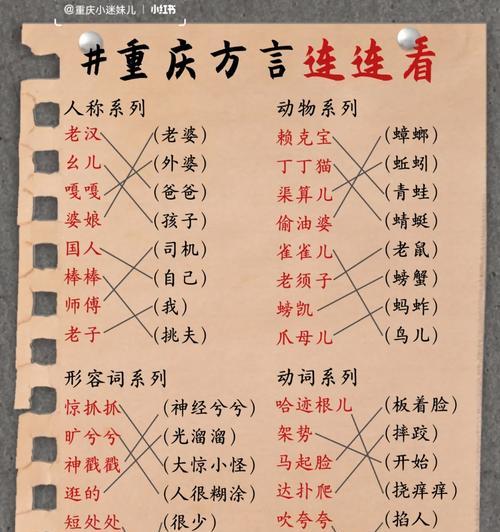 @重庆小迷妹儿 | 小红书
#重庆方言连连看
人称系列
老汉 (老婆)
幺儿 (外婆)
嘎嘎 (爸爸)
婆娘 (孩子)
国人 (司机)
棒棒 (自己)
师傅 (我)
老子 (挑夫)
动物系列
赖克宝 (蟑螂)
丁丁猫 (蚯蚓)
渠算儿 (青蛙)
偷油婆 (蜻蜓)
雀雀儿 (老鼠)
老须子 (螃蟹)
螃凯 (蚂蚱)
爪母儿 (鸟儿)
形容词系列
惊抓抓 (神经兮兮)
旷兮兮 (光溜溜)
神戳戳 (大惊小怪)
逛的 (人很糊涂)
短处处 (很少)
动词系列
哈迹根儿 (板着脸)
架势 (摔跤)
马起脸 (开始)
达扑爬 (挠痒痒)
吹夸夸 (掐人)